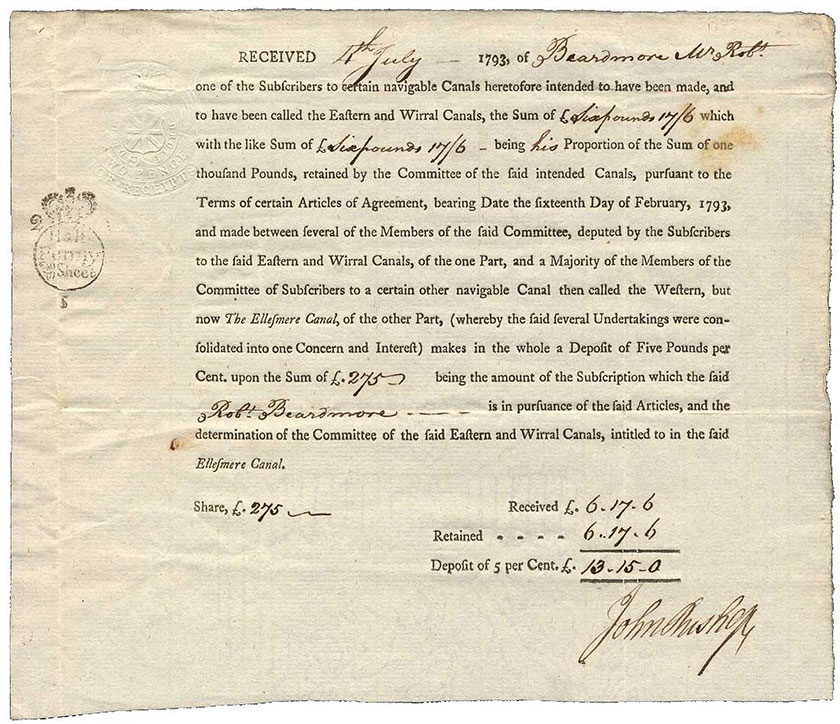 RECEIVED 4th July — 1793, of Beardmore Mr Robt.
one of the Subſcribers to certain navigable Canals heretofore intended to have been made, and
to have been called the Eaſtern and Wirral Canals, the Sum of £ Sixpounds 17/6 which
with the like Sum of £ Sixpounds 17/6 – being his Proportion of the Sum of one
thouſand Pounds, retained by the Committee of the ſaid intended Canals, purſuant to the
Terms of certain Articles of Agreement, bearing Date the ſixteenth Day of February, 1793,
and made between ſeveral of the Members of the ſaid Committee, deputed by the Subſcribers
to the ſaid Eaſtern and Wirral Canals, of the one Part, and a Majority of the Members of the
Committee of Subſcribers to a certain other navigable Canal then called the Weſtern, but
now The Elleſmere Canal, of the other Part, (whereby the ſaid ſeveral Undertakings were con-
ſolidated into one Concern and Intereſt) makes in the whole a Depoſit of Five Pounds per
Cent. upon the Sum of £. 275 being the amount of the Subſcription which the ſaid
Robt Beardmore - - - - is in purſuance of the ſaid Articles, and the
determination of the Committee of the ſaid Eaſtern and Wirral Canals, intitled to in the ſaid
Elleſmere Canal.
Share, £. 275
Received £. 6.17.6
Retained - - - - 6.17.6
Depoſit of 5 per Cent. £. 13.15.0
John Bishop
Half
Penny
Sheet
RECEIPTS